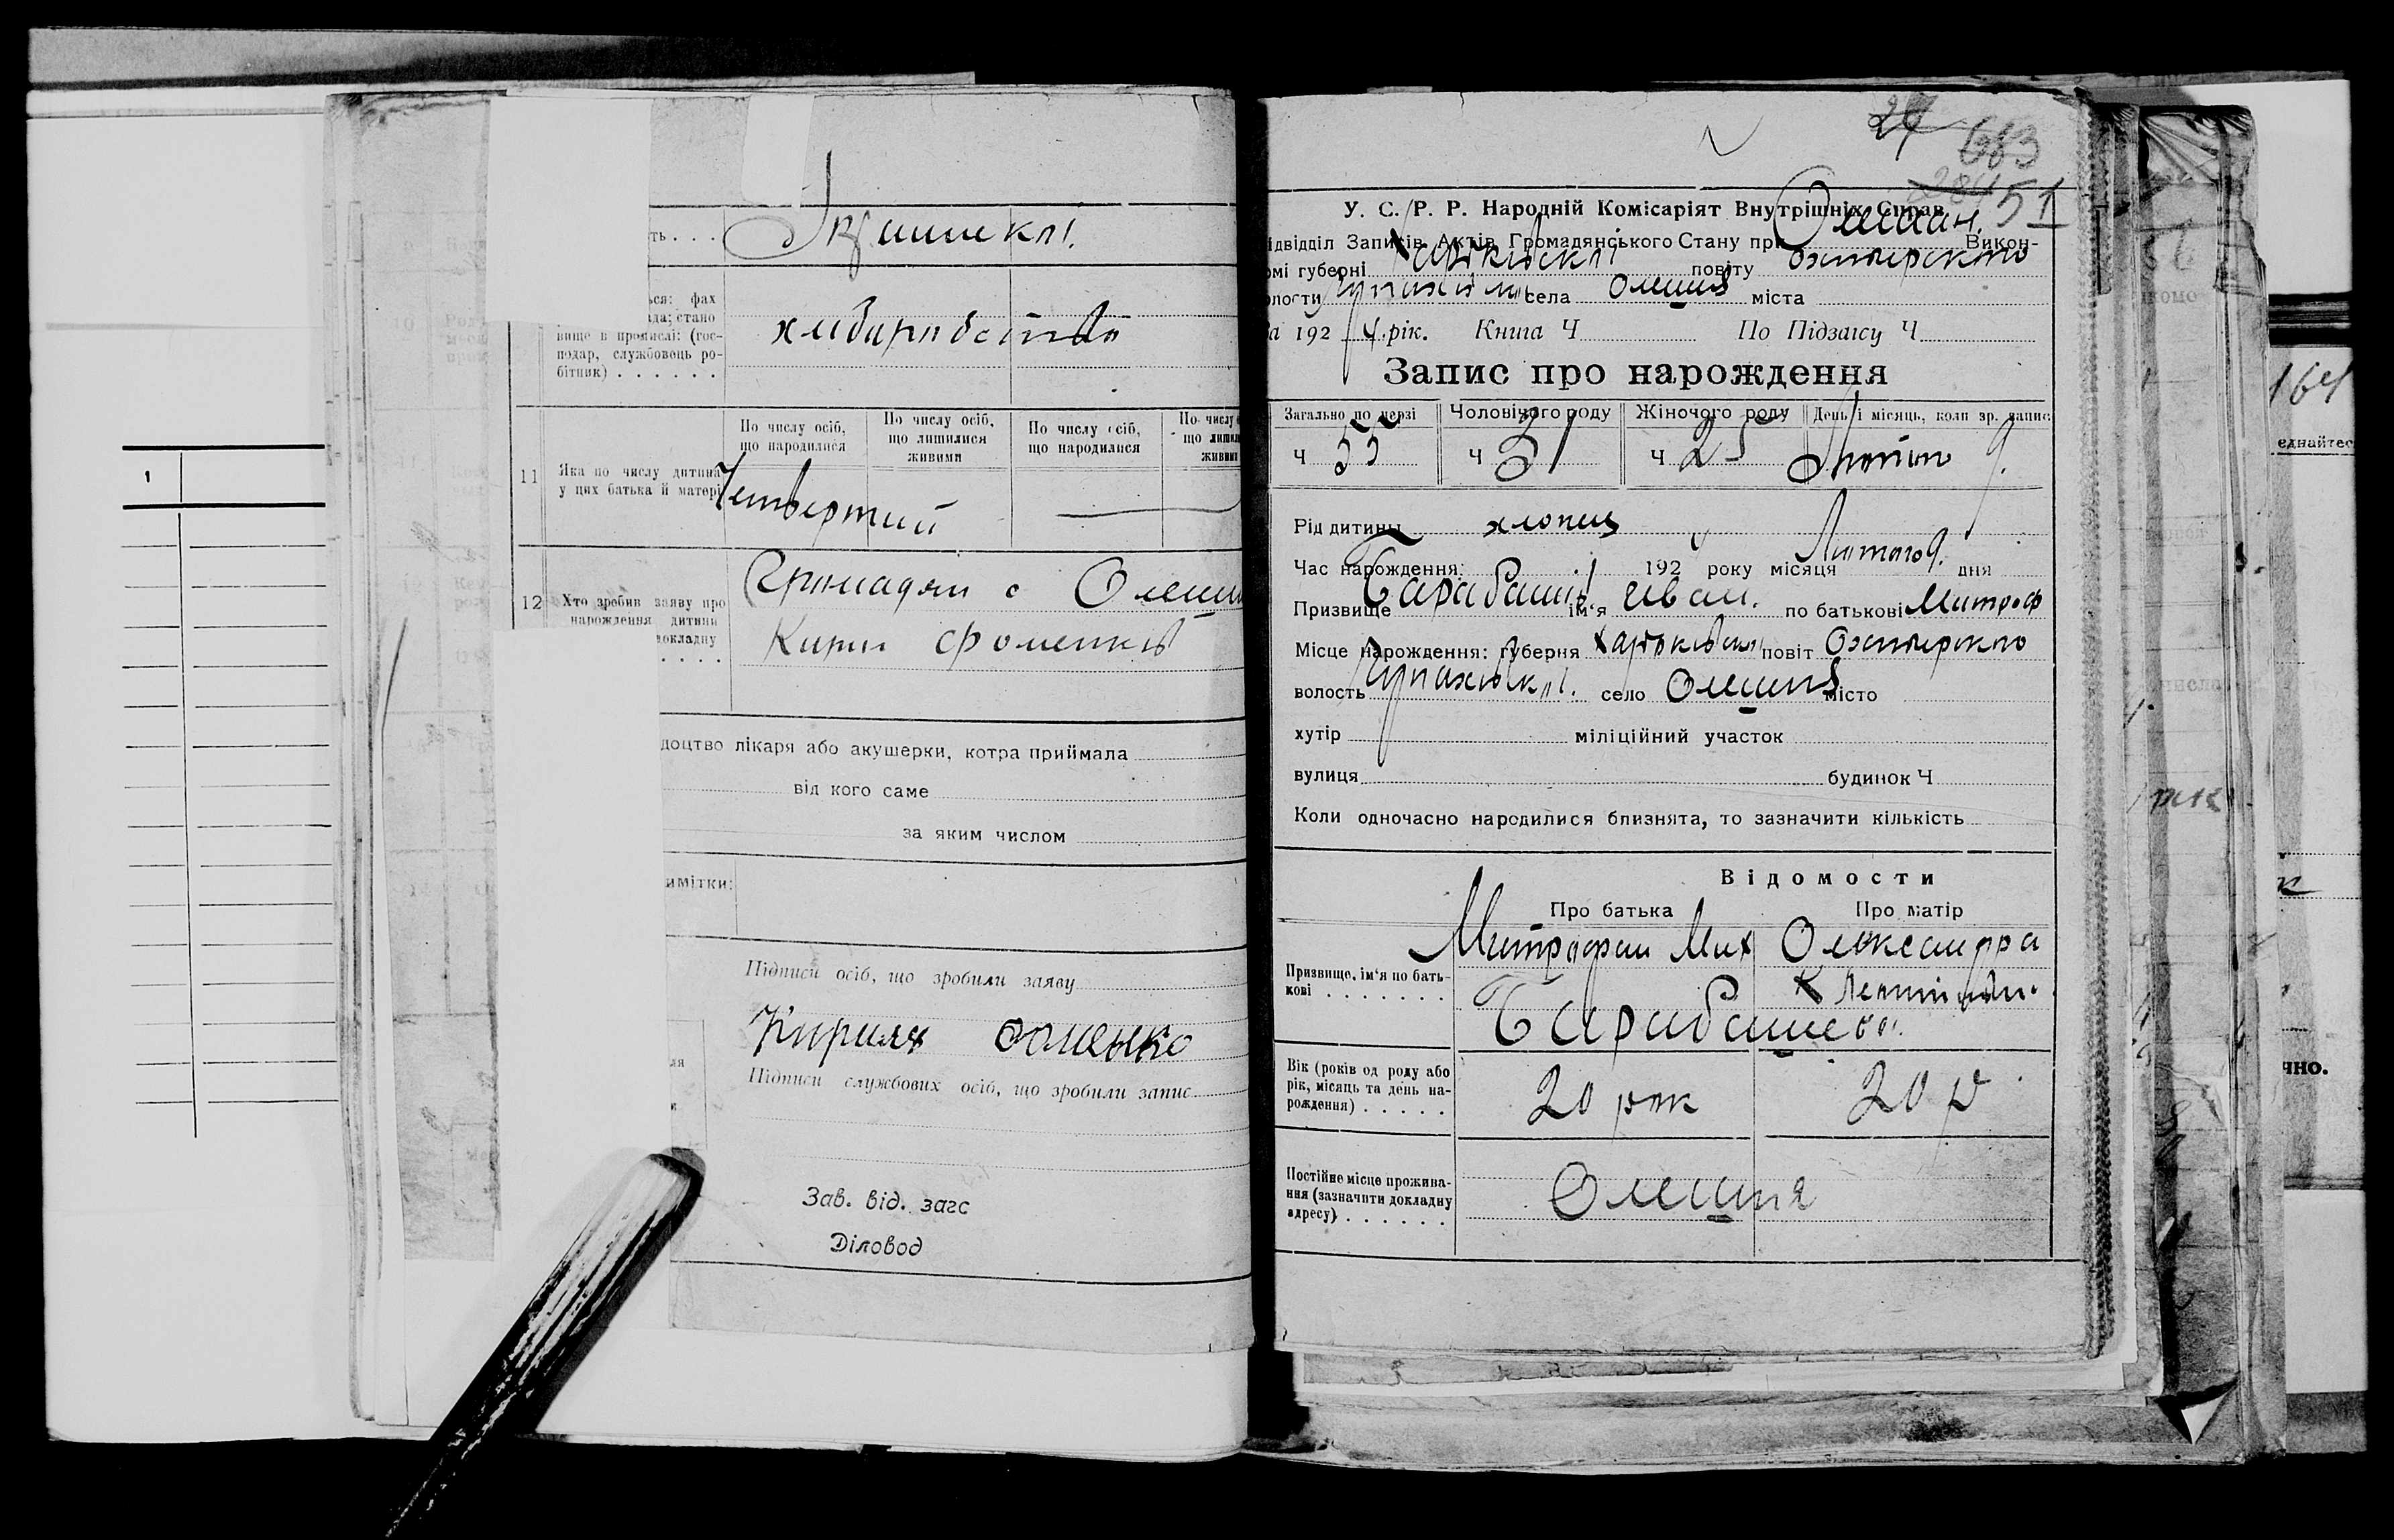 1
ть . . .
ься: фах
да; стано
вище в прописі: (гос-
подар, службовець ро-
бітник) . . . . . .
По числу осіб, що народилися
По числу осіб, що лишилися живими
По числу осіб, що народилися
11 Яка по числу дитина у цих батька й матері
Четвертий
12 Хто зробив заяву про нарождення дитини
докладну
Громадян с Олеш
Кирил Фоменко
доцтво лікаря або акушерки, котра приймала
від кого саме
за яким числом
имітки:
Підписи осіб, що зробили заяву
Кирила Фоменко
Підписи службових осіб, що зробили запис
Зав. від. загс
Діловод
683
51
У. С. Р. Р. Народній Комісаріят Внутрішніх Справ
ідвідділ Записів Актів Громадянського Стану при Викон-
омі губерні Харьківскої повіту Охтирского
олости села Олешня міста
а 192 4 рік. Книга Ч По Підзагсу Ч
Запис про нарождення
Загально по черзі Чоловічого роду Жіночого роду День і місяць, коли зр. запис
Ч 55 Ч 31 Ч 25 Лютого 9.
Рід дитини хлопець
Час нарождення: 192 року місяця Лютого 9. дня
Призвище Барабаш ім'я Иван. по батькові Митроф
Місце нарождення: губерня Харьківскої повіт Охтирского
волость село Олешня місто
хутір міліційний участок
вулиця будинок Ч
Коли одночасно народилися близнята, то зазначити кількість
Відомости
Про батька Про матір
Призвище, ім'я по бать-
кові . . . . . . .
Митрофан Мих Олександра
Барабашева.
Вік (років од роду або
рік, місяць та день на-
рождення) . . . . .
20 рок 20 р
Постійне місце прожива-
ння (зазначити докладну
адресу) . . . . . .
Олешня
164
еднайтес
чно.